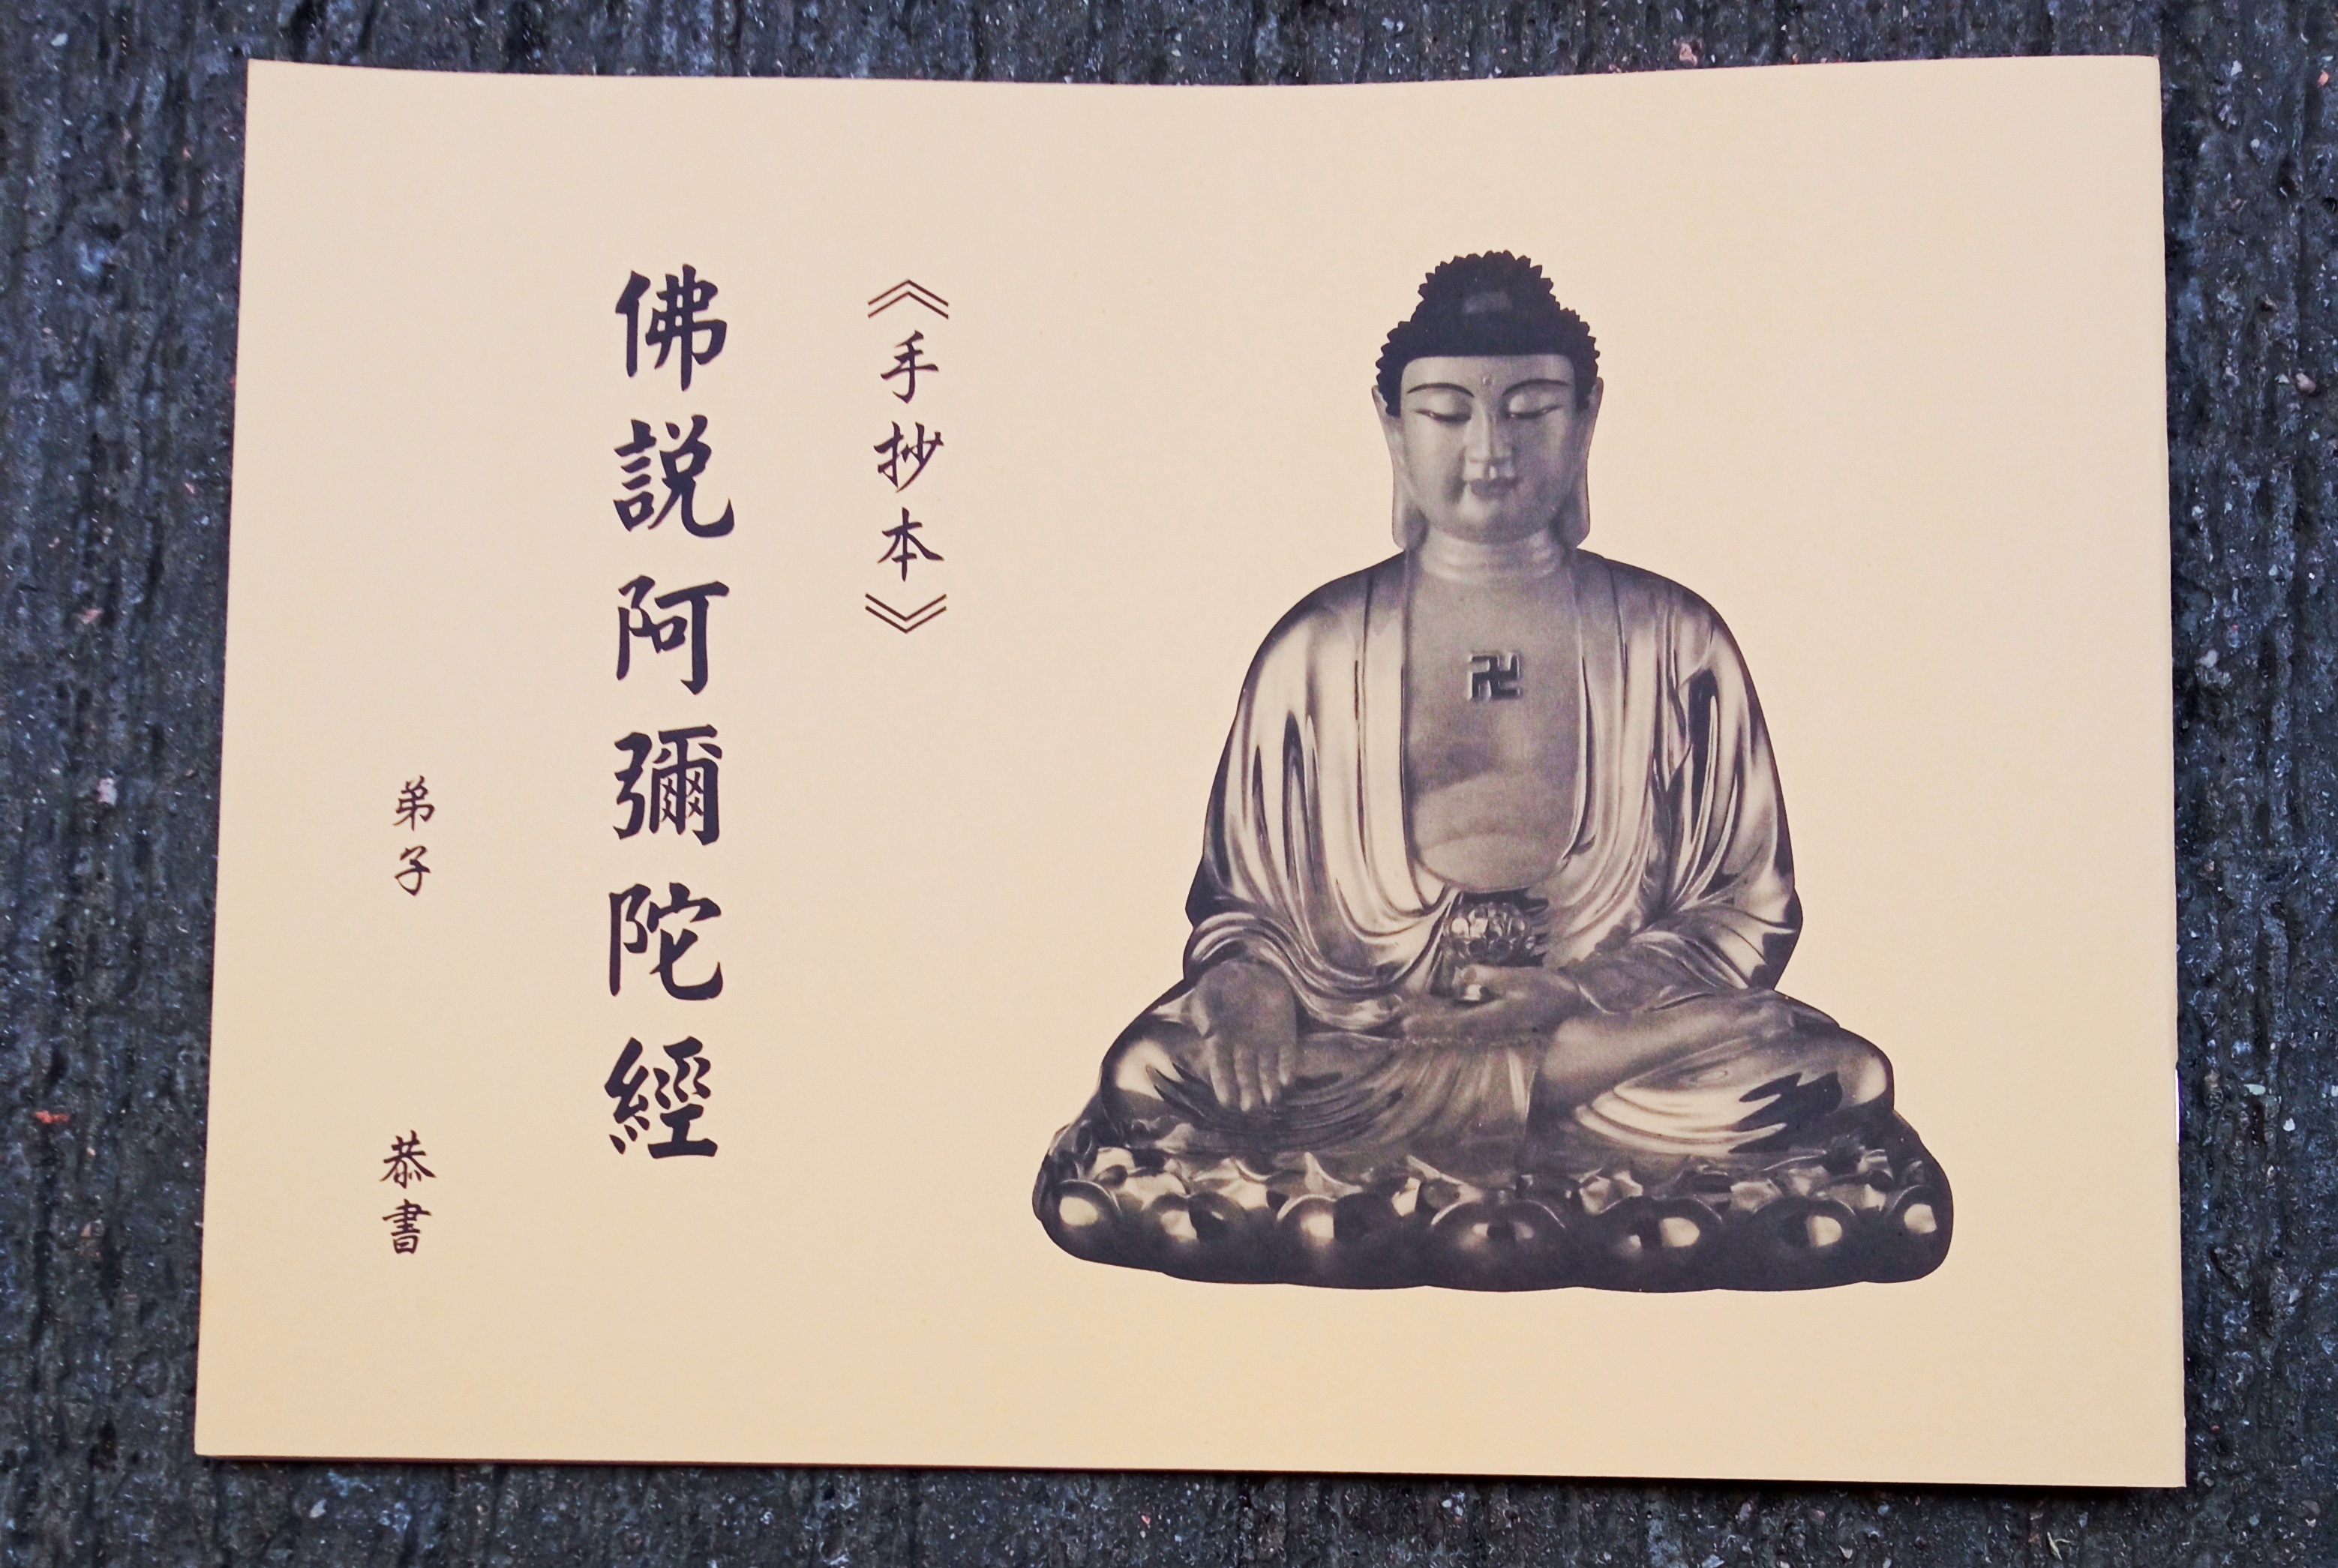 《手抄本》
佛説阿彌陀經
弟子　恭書